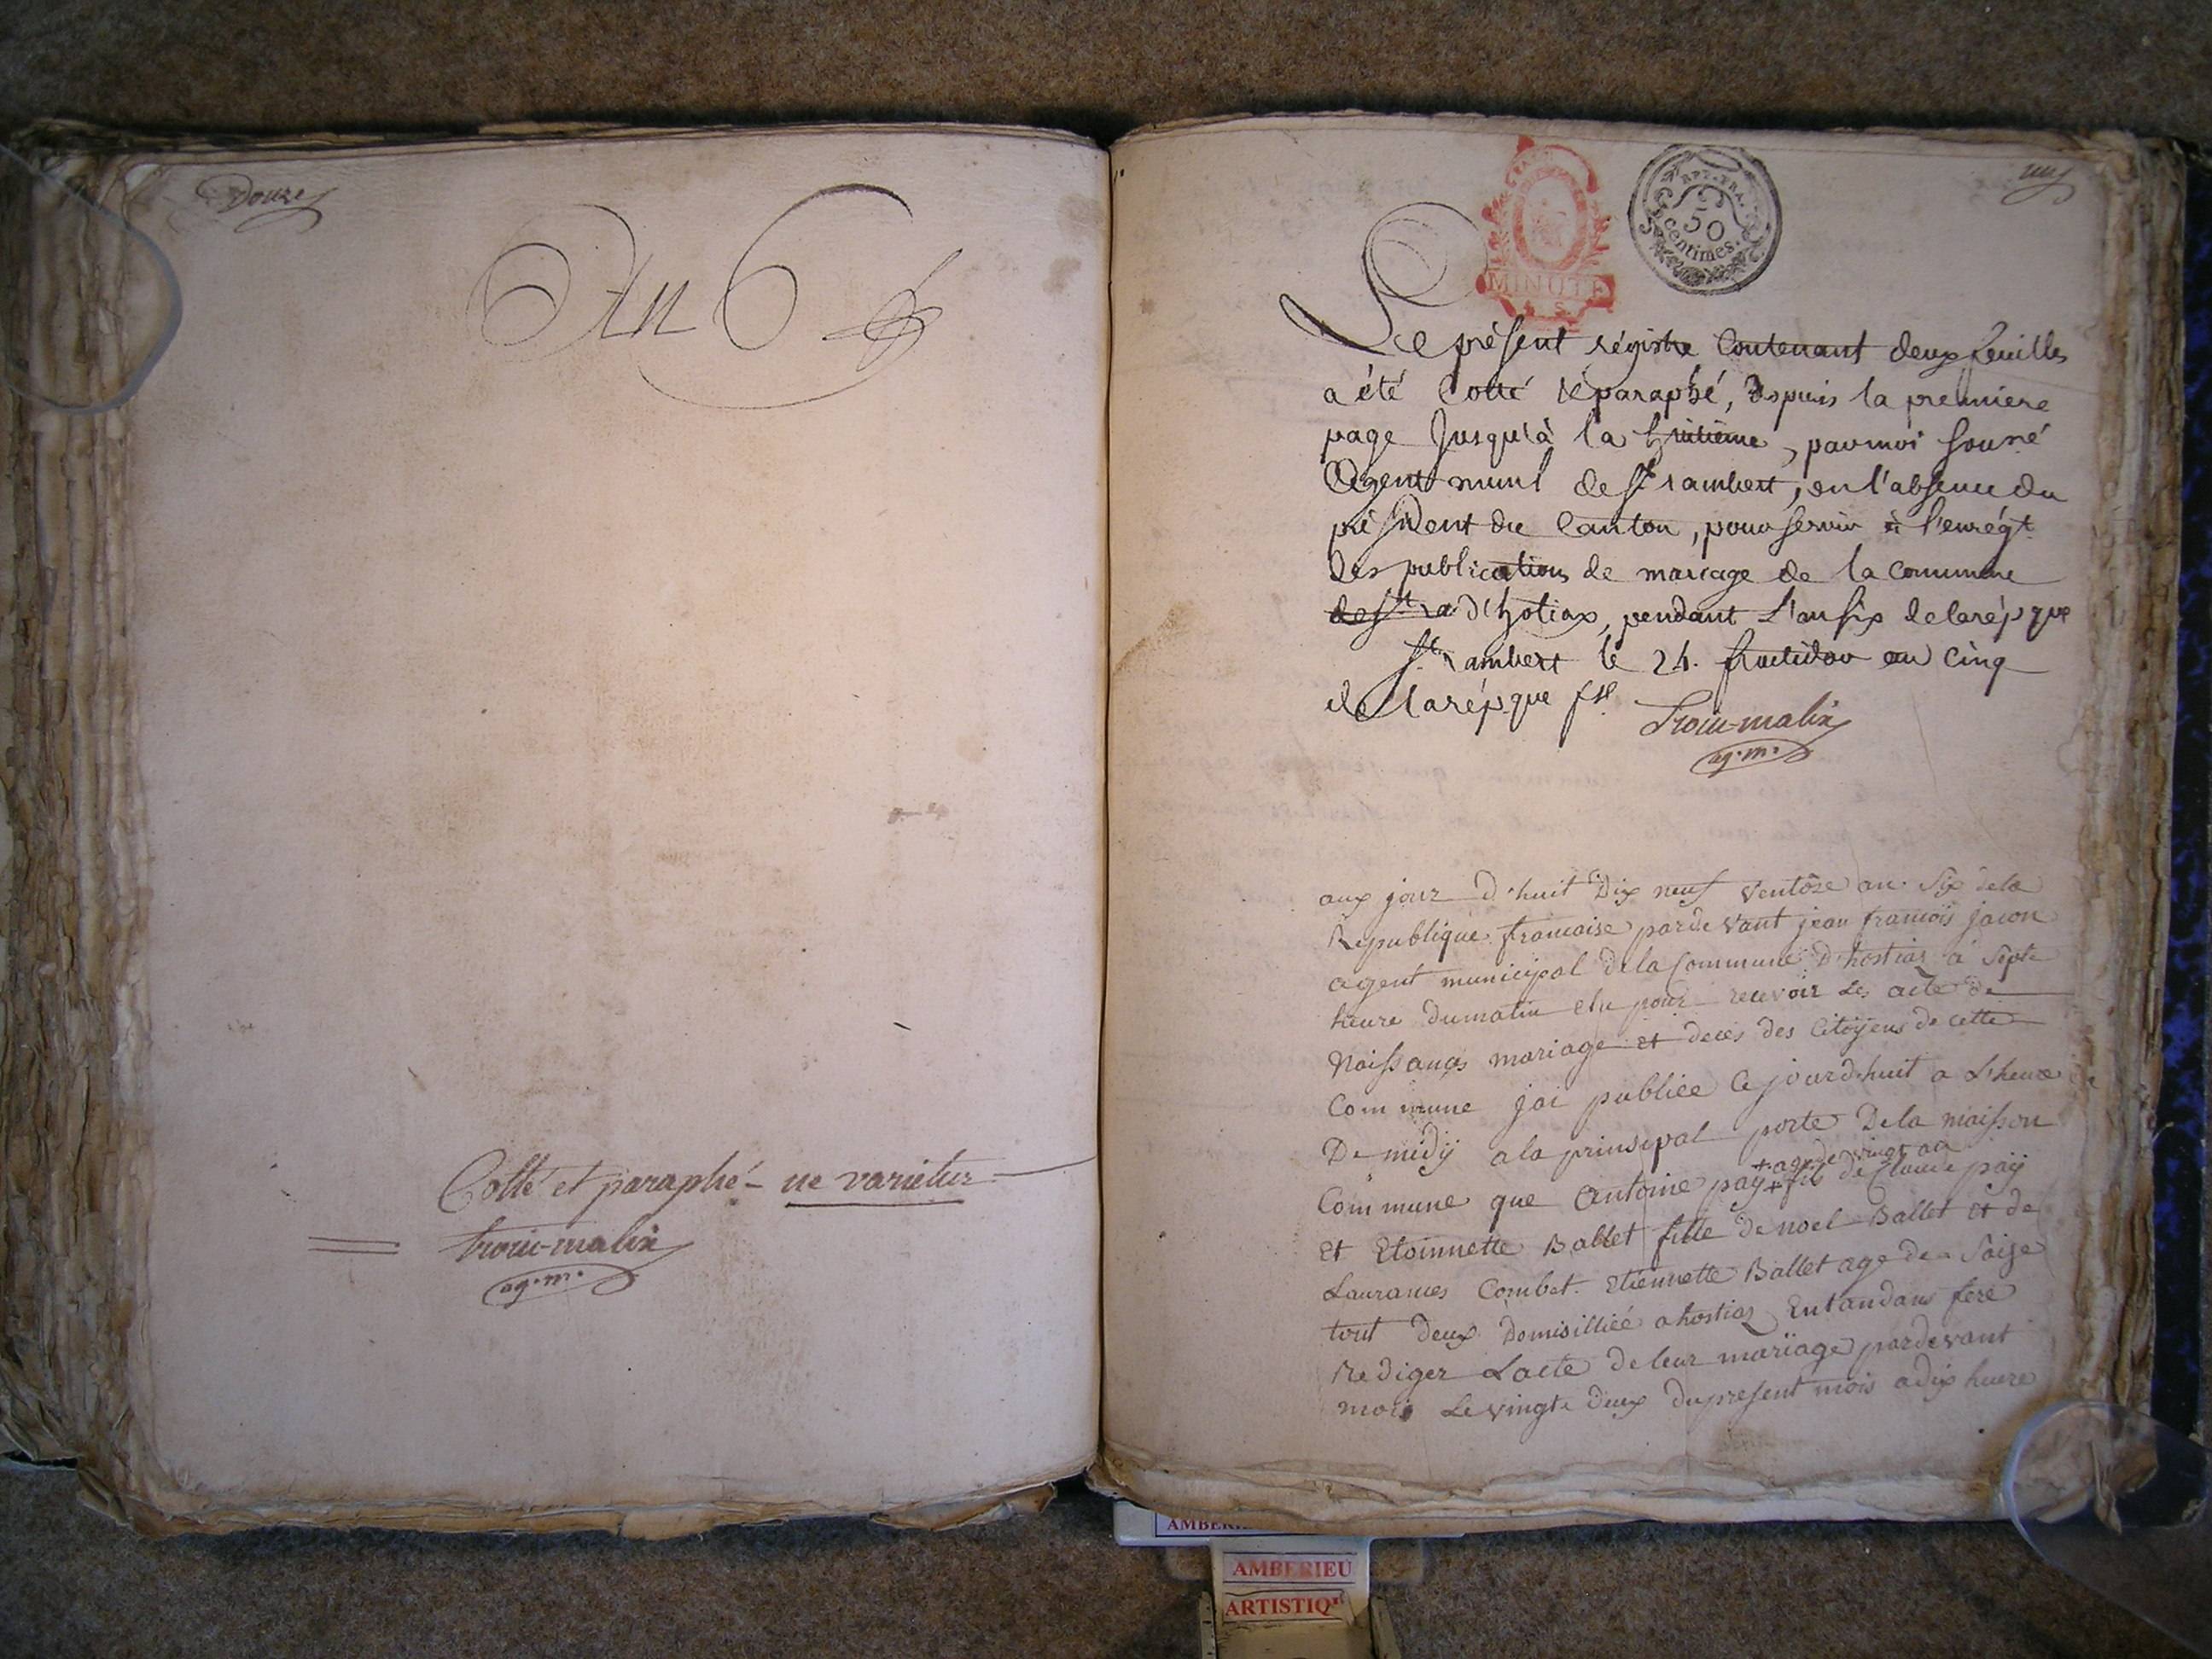 Douze
An 6
Cotté et paraphé - ne varietur
trocu-malix
ag. m.
un
MINUTE
REP. FRA.
50
centimes.
Le présent régistre Contenant deux feuilles
a été Cotté & paraphé, Depuis la premiere
page Jusqu'à la huitième, par moi sousné
Agent munl de St rambert, en l'absence du
président du Canton, pour servir à l'enrégt
des publications de mariage de la Commune
de St ra d'hotiax, pendant L'an six de la répque
St rambert le 24. fructidor an cinq
de la répque fse
Trocu-malix
ag. m.
aux jour d'huit Dix neuf Ventôse an Six de la
Republique francaise parde vant jean francois jacon
agent municipal de la Commune D'hostiaz à Sept
heure du matin elu pour recevoir Les acte de
Naissances mariage et deces des Citoyens de cette
Commune jai publiee Ce jourd'huit a L'heure
De midÿ a la prinsipal porte De la maisson
+ age de vingt an
Commune que Antoine paÿ + fils de Claude paÿ
Et Etoinnette Ballet fille de noel Ballet Et de
Laurances Combet. Etiennette Ballet age de Saise
tout deux domisilliéé a hostiaz Entandans fere
Rediger L'acte de leur mariage pardevant
mois Le vingte deux du present mois a dix huere
AMBERIEU
ARTISTIQ